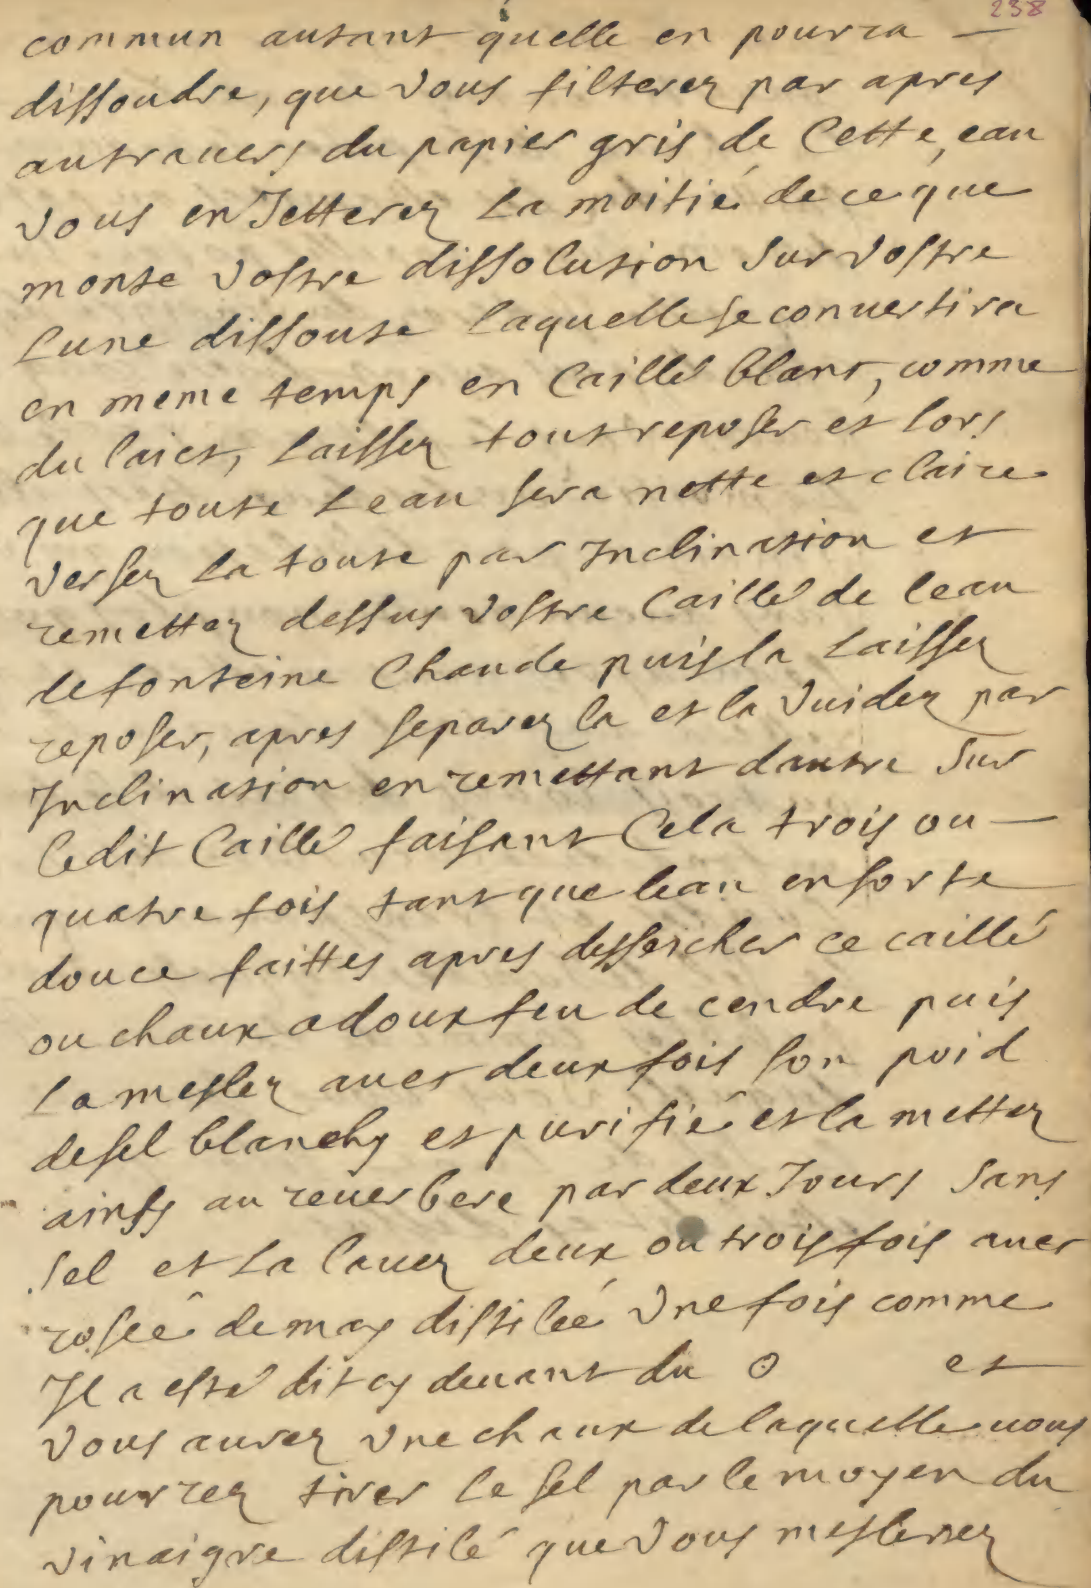 238
commun autant quelle en pourra —
dissoudre, que vous filterez par apres
autravers du papier gris de Cette, eau
vous en Jetterez La moitié de ce que
monte vostre dissolution sur vostre
Lune dissoute laquelle se convertira
en meme temps en Caillé blanc, comme
du laict, laissez tout reposer et lors
que toute Leau sera nette et claire
versez La toute par Inclination et
remettez dessus vostre Caillé de leau
de fonteine Chaude puis la Laissez
reposer, apres separez la et la vuidez par
Inclination en remettant dautre sur
ledit Caillé faisant Cela trois ou —
quatre fois tant que leau en sorte
douce faittes apres desseicher ce caillé
ou chaux a doux feu de cendre puis
La meslez avec deux fois son poid
de sel blanchy et purifié et la mettez
ainsy au reverbere par deux Jours sans
sel et La lavez deux ou trois fois avec
rosée de may distilée vne fois comme
Il a esté dit cy devant du ☉ et
vous aurez vne chaux de laquelle vous
pourrez tirer le sel par le moyen du
vinaigre distilé que vous meslerez